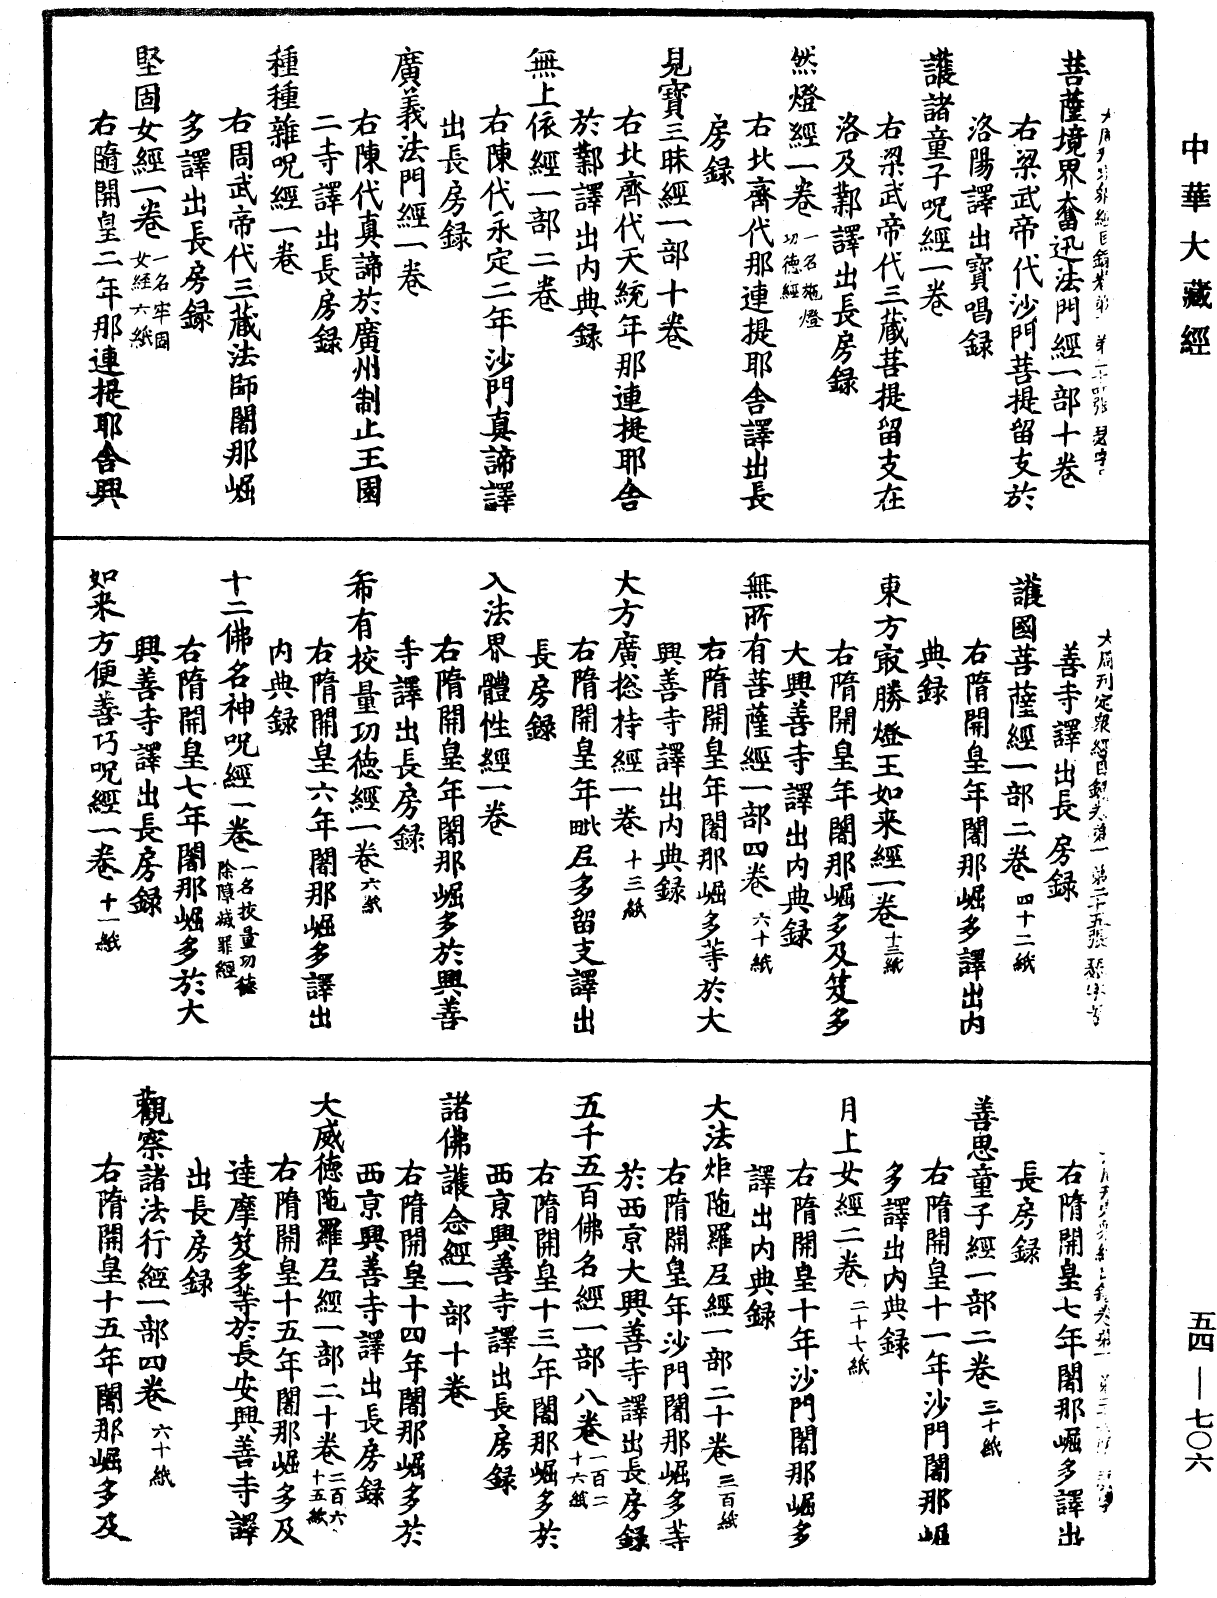 中華大藏經
菩薩境界奮迅法門經一部十卷
右梁武帝代沙門菩提留支於
洛陽譯出寶唱録
護諸童子呪經一卷
右梁武帝代三藏菩提留支在
洛及鄴譯出長房録
然燈經一卷 一名施燈功德經
右北齊代那連提耶舍譯出長
房録
見寶三昧經一部十卷
右北齊代天統年那連提耶舍
於鄴譯出内典録
無上依經一部二卷
右陳代永定二年沙門真諦譯
出長房録
廣義法門經一卷
右陳代真諦於廣州制止王園
二寺譯出長房録
種種雜呪經一卷
右周武帝代三藏法師闍那崛
多譯出長房録
堅固女經一卷 一名牢固女經六紙
右隨開皇二年那連提耶舍興
大周刊定衆經目録卷第一 第二十五張
善寺譯出長房録
護國菩薩經一部二卷 四十二紙
右隋開皇年闍那崛多譯出内
典録
東方冣勝燈王如来經一卷 十三紙
右隋開皇年闍那崛多及笈多
大興善寺譯出内典録
無所有菩薩經一部四卷 六十紙
右隋開皇年闍那崛多等於大
興善寺譯出内典録
大方廣捴持經一卷 十三紙
右隋開皇年毗尼多留支譯出
長房録
入法界體性經一卷
右隋開皇年闍那崛多於興善
寺譯出長房録
希有校量功德經一卷 六紙
右隋開皇六年闍那崛多譯出
内典録
十二佛名神呪經一卷 一名校量功德除障滅罪經
右隋開皇七年闍那崛多於大
興善寺譯出長房録
如来方便善巧呪經一卷 十一紙
右隋開皇七年闍那崛多譯出
長房録
善思童子經一部二卷 三十紙
右隋開皇十一年沙門闍那崛
多譯出内典録
月上女經二卷 二十七紙
右隋開皇十年沙門闍那崛多
譯出内典録
大法炬陁羅尼經一部二十卷 三百紙
右隋開皇年沙門闍那崛多等
於西京大興善寺譯出長房録
五千五百佛名經一部八卷 一百二十六紙
右隋開皇十三年闍那崛多於
西京興善寺譯出長房録
諸佛護念經一部十卷
右隋開皇十四年闍那崛多於
西京興善寺譯出長房録
大威德陁羅尼經一部二十卷 二百六十五紙
右隋開皇十五年闍那崛多及
達摩笈多等於長安興善寺譯
出長房録
觀察諸法行經一部四卷 六十紙
右隋開皇十五年闍那崛多及
五四—七〇六